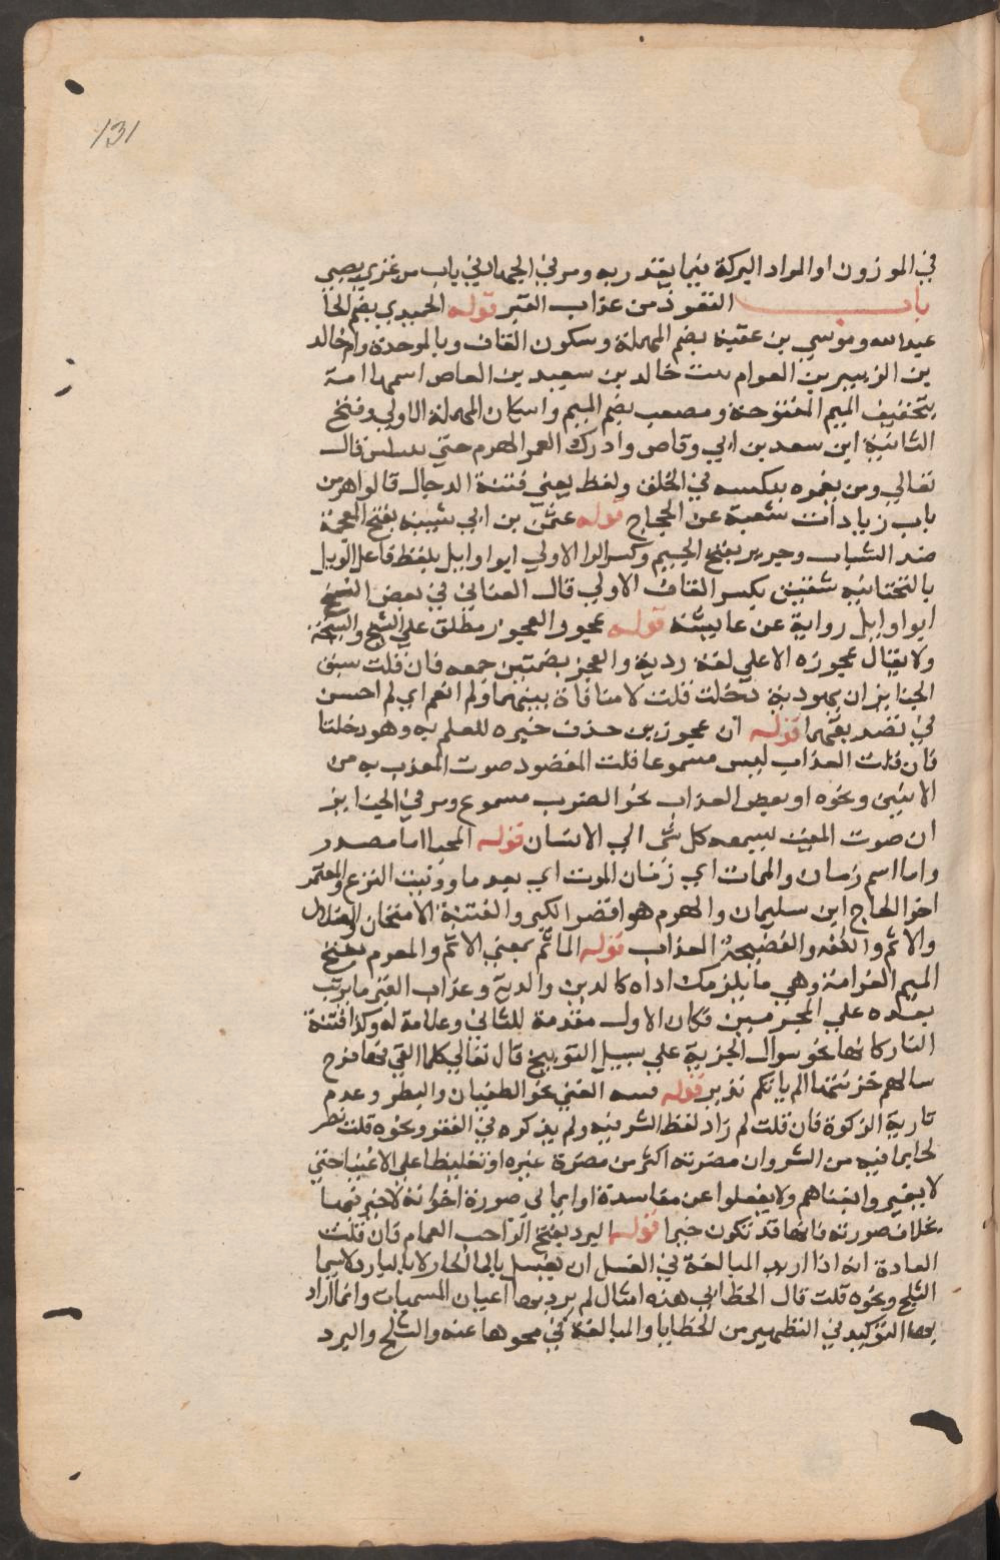 131
في الموزون او المراد البركة فيما يقتدر به ومر في الجهاد في باب من غزي بصبي
باب التعوذ من عذاب القبر قوله الحميدي بضم الحا
عبد الله وموسي بن عقبة بضم المهملة وسكون القاف وبالموحدة وام خالد
بن الزبير بن العوام بنت خالد بن سعيد بن العاص اسمها امة
بتخفيف الميم المفتوحة ومصعب بضم الميم واسكان المهملة الاولي وفتح
الثانية ابن سعد بن ابي وقاص وادرك العمر الهرم حتي قال
تعالي ومن نعمره ننكسه في الخلق ولفظ يعني فتنة الدجال قالوا هو من
باب زيادات شعبة عن الحجاج قوله عثمن بن ابي شيبة بفتح المعجمة
ضد الشباب وجرير بفتح الجيم وكسر الرا الاولي ابو وايل بلفظ فاعل الويل
بالتحتانية شقيق بكسر القاف الاولي قال الغساني في بعض النسخ
ابو وايل رواية عن عايشة قوله عجوز العجوز يطلق علي الشيخ والشيخة
ولا يقال عجوزه الا علي لغة ردية والعجز بضمتين جمعه فان قلت سبق
الجنايز ان يهودية دخلت قلت لا منافاة بينهما ولم انعم اي لم احسن
في تصديقهما قوله ان عجوزين حذف خبره للعلم به وهو دخلتا
فان قلت العذاب ليس مسموعا قلت المقصود صوت المعذب به من
الانين ونحوه او بعض العذاب نحو الضرب مسموع ومر في الجنايز
ان صوت الميت يسمعه كل شي الا الانسان قوله المحيا اما مصدر
واما اسم زمان والممات اي زمان الموت اي بعد ما ووقت النزع والمعتمر
اخو الحاج ابن سليمان والهرم هو اقصر الكبر والفتنة الامتحان والضلال
والاثم والكفر والفضيحة والعذاب قوله الماثم بمعني الاثم والمغرم بفتح
الميم الغرامة وهي ما يلزمك اداه كالدين والدية وعذاب القبر ما يرتب
بعده علي المجرمين فكان الاول مقدمة للثاني وعلامة له وكذا فتنة
النار كانها نحو سوال الخزنة علي سبيل التوبيخ قال تعالي كلما القي فيها فوج
سالهم خزنتها الم ياتكم نذير قوله فتنة الغني نحو الطغيان والبطر وعدم
تادية الزكوة فان قلت لم زاد لفظ الشر فيه ولم يذكره في الفقر ونحوه قلت
لما فيه من الشر وان مضرته اكثر من مضرة غيره او تغليظا علي الاغنيا حتي
لا يغتروا بغناهم ولا يغفلوا عن مفاسده او ايما الي صورة اخواته لا خير فيها
بخلاف صورته فانها قد تكون خيرا قوله البرد بفتح الرا حب الغمام فان قلت
العادة انه اذا اريد المبالغة في الغسل ان يغسل بالما الحار لا بالبارد لا سيما
الثلج ونحوه قلت قال الخطابي هذه امثال لم يرد بها اعيان المسميات وانما اراد
بها التوكيد في التطهير من الخطايا والمبالغة في محوها عنه والثلج والبرد